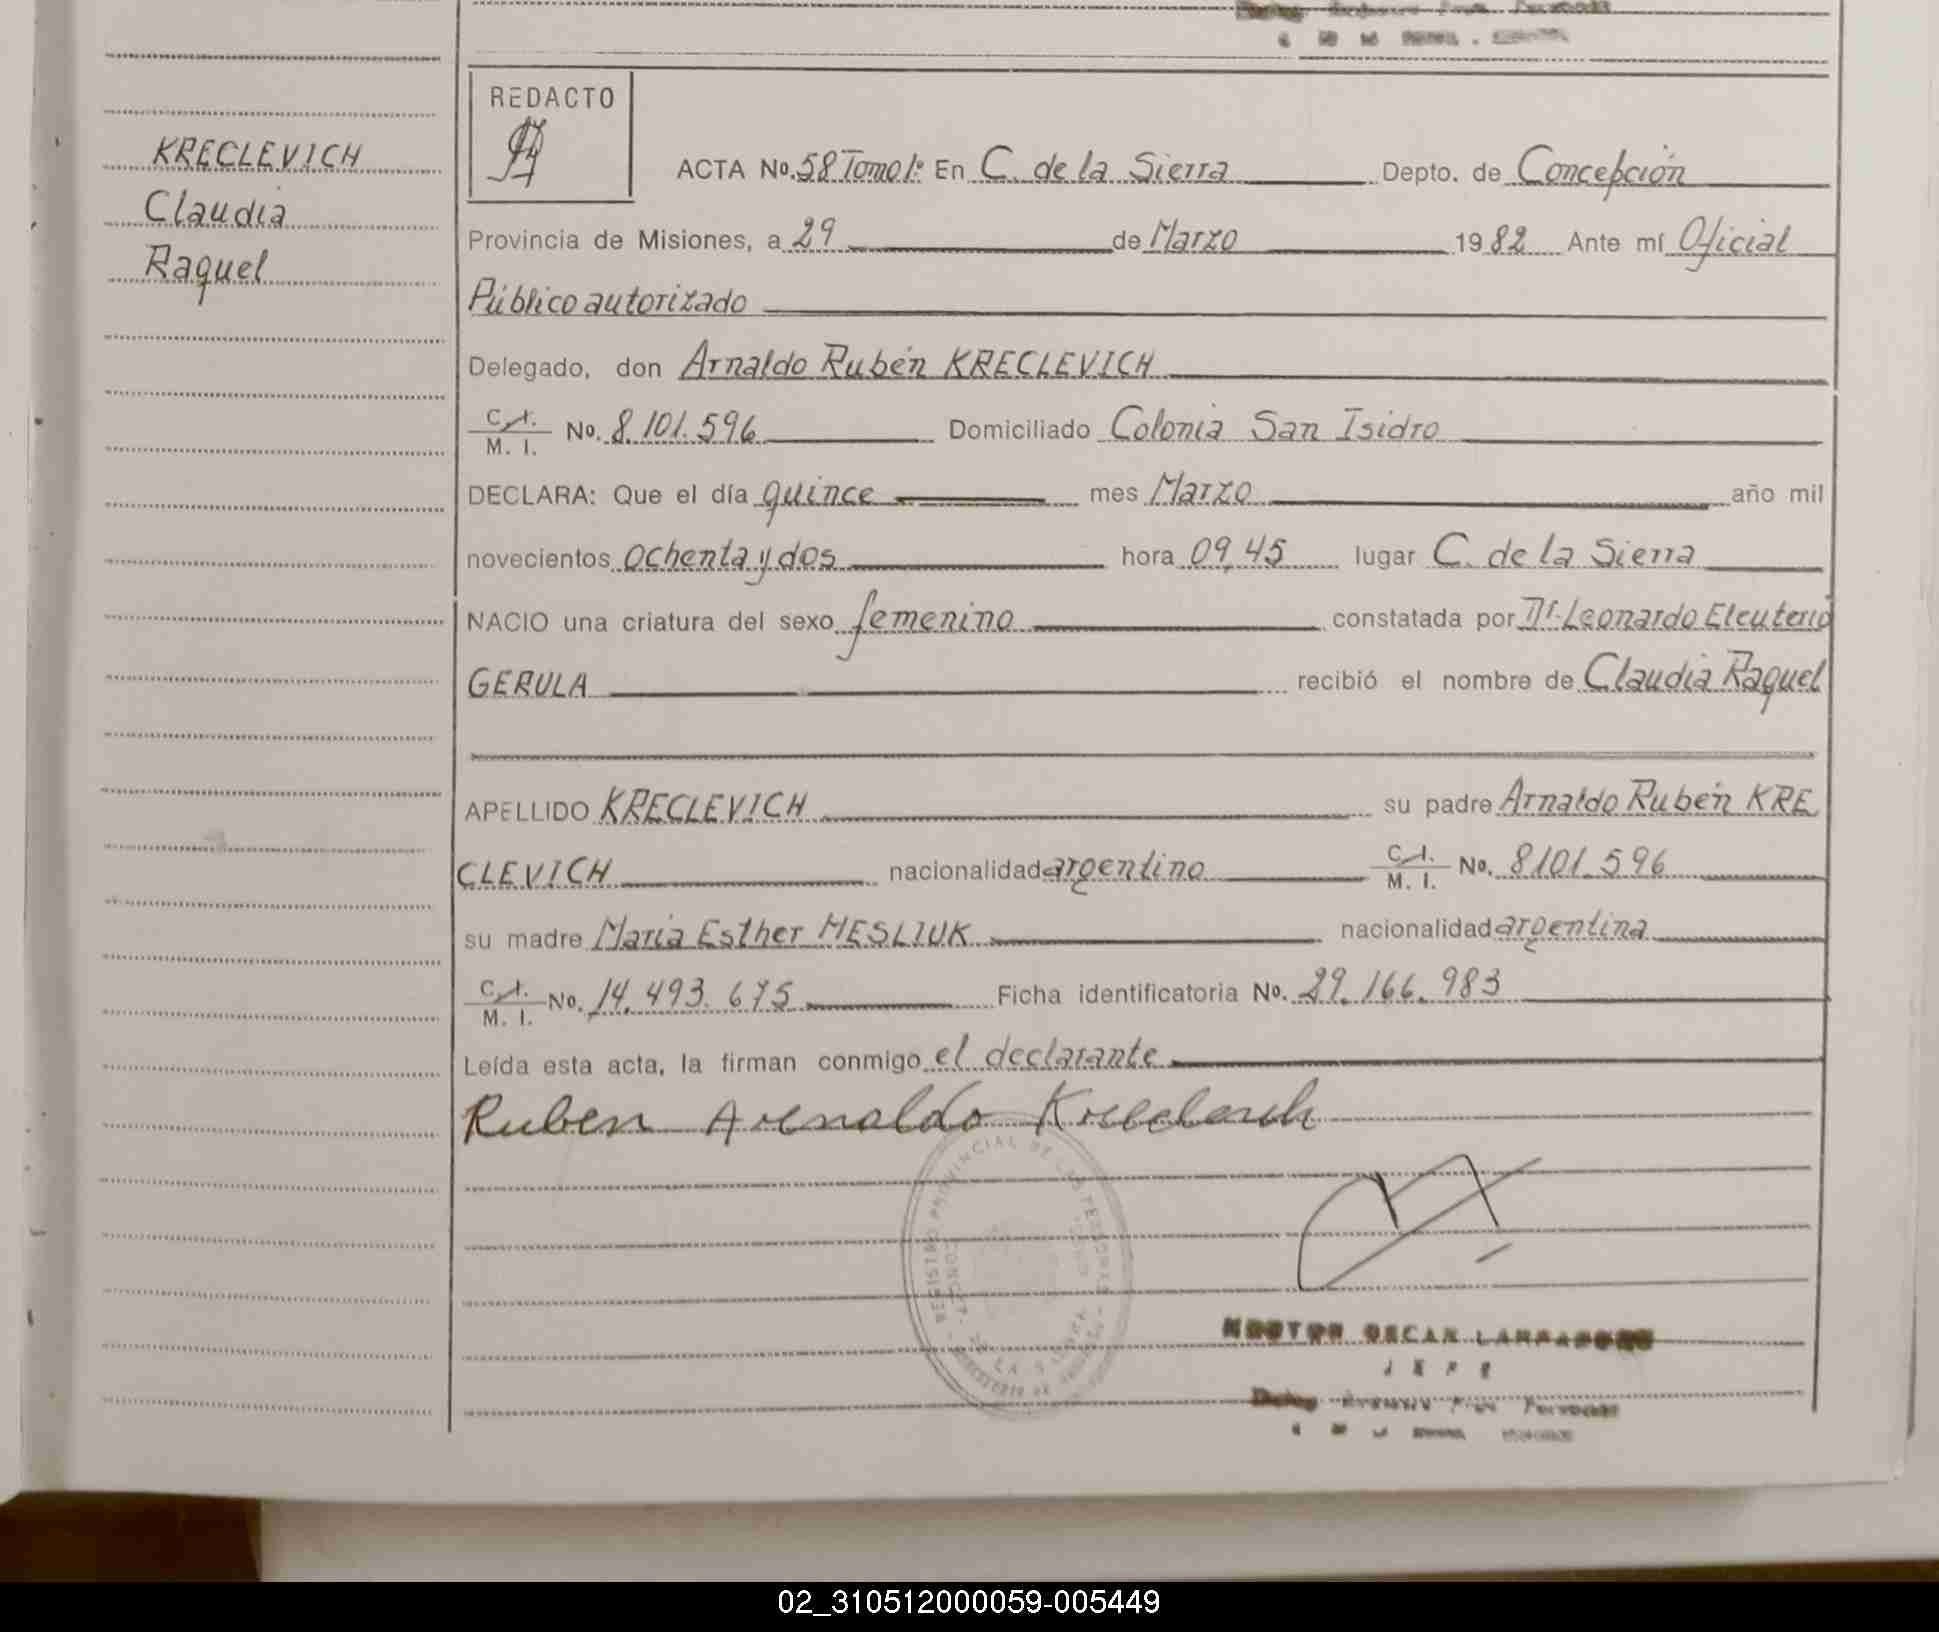 KRECLEVICH
Claudia
Raquel
REDACTO
ACTA No. 58 Tomo 1º En C. de la Sierra Depto. de Concepción
Provincia de Misiones, a 29 de Marzo 1982 Ante mí Oficial
Público autorizado
Delegado, don Arnaldo Rubén KRECLEVICH
C. I.
M. I. No. 8.101.596 Domiciliado Colonia San Isidro
DECLARA: Que el día quince mes Marzo año mil
novecientos ochenta y dos hora 09,45 lugar C. de la Sierra
NACIO una criatura del sexo femenino constatada por Dr. Leonardo Eleuterio
GERULA recibió el nombre de Claudia Raquel
APELLIDO KRECLEVICH su padre Arnaldo Rubén KRE
CLEVICH nacionalidad argentino C. I.
M. I. No. 8101.596
su madre Maria Esther MESLIUK nacionalidad argentina
C. I.
M. I. No. 14.493.675 Ficha identificatoria No. 29.166.983
Leída esta acta, la firman conmigo el declarante
Ruben Arnaldo
REGISTRO PROVINCIAL DE LAS PERSONAS
OSCAR
JEFE
02_310512000059-005449